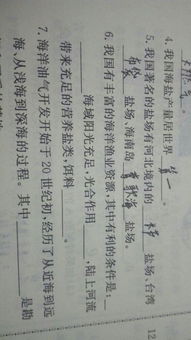 4. 我国海盐产量居世界 第一 。
5. 我国著名的盐场有河北境内的 盐场、台湾
盐场、海南岛 莺歌海 盐场。
6. 我国有丰富的海洋渔业资源,其中有利的条件是:
海域阳光充足,光合作用 ,陆上河流
带来充足的营养盐类,饵料 。
7. 海洋油气开发开始于20世纪初,经历了从近海到远
海、从浅海到深海的过程。其中 是勘
12